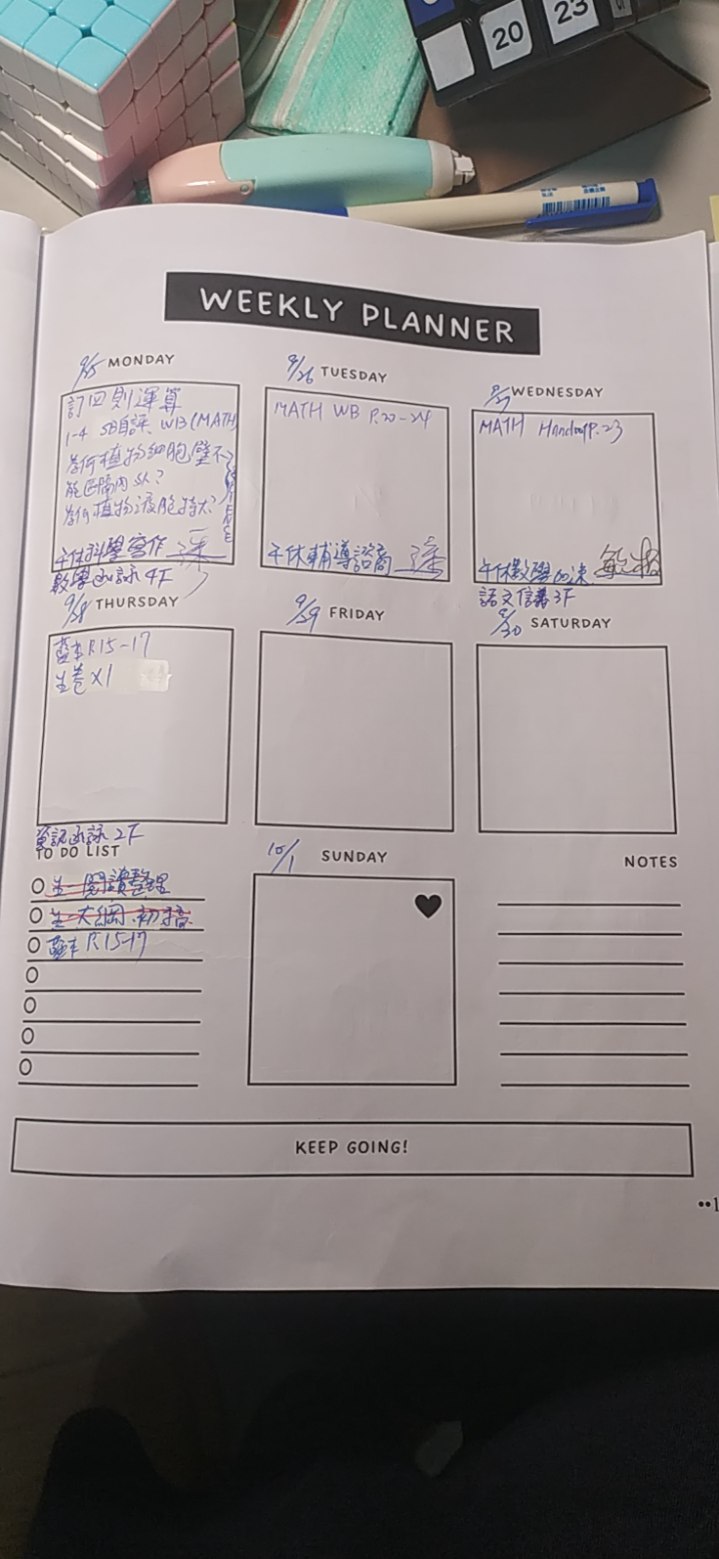 20
23
WEEKLY PLANNER
9/25 MONDAY
訂四則運算
1-4 SB自評 WB(MATH)
為何植物細胞壁不
能區隔內外?
為何植物液胞特大?
午休科學寫作
數學 4F
9/26 TUESDAY
MATH WB P.20-24
午休輔導諮商
9/27 WEDNESDAY
MATH Handout P.23
午休數學
語文 3F
9/28 THURSDAY
藍本 P.15-17
生卷 X1
資訊 2F
9/29 FRIDAY
9/30 SATURDAY
TO DO LIST
生-閱讀整理
生-大綱 初稿
藍本 P.15-17
10/1 SUNDAY
NOTES
KEEP GOING!